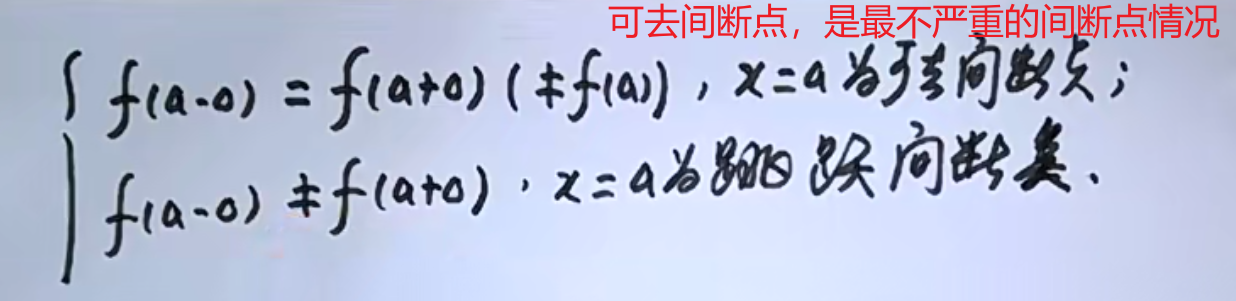 可去间断点，是最不严重的间断点情况
{ f(a-0) = f(a+0) (≠f(a)), x=a为可去间断点;
f(a-0) ≠ f(a+0), x=a为跳跃间断点.